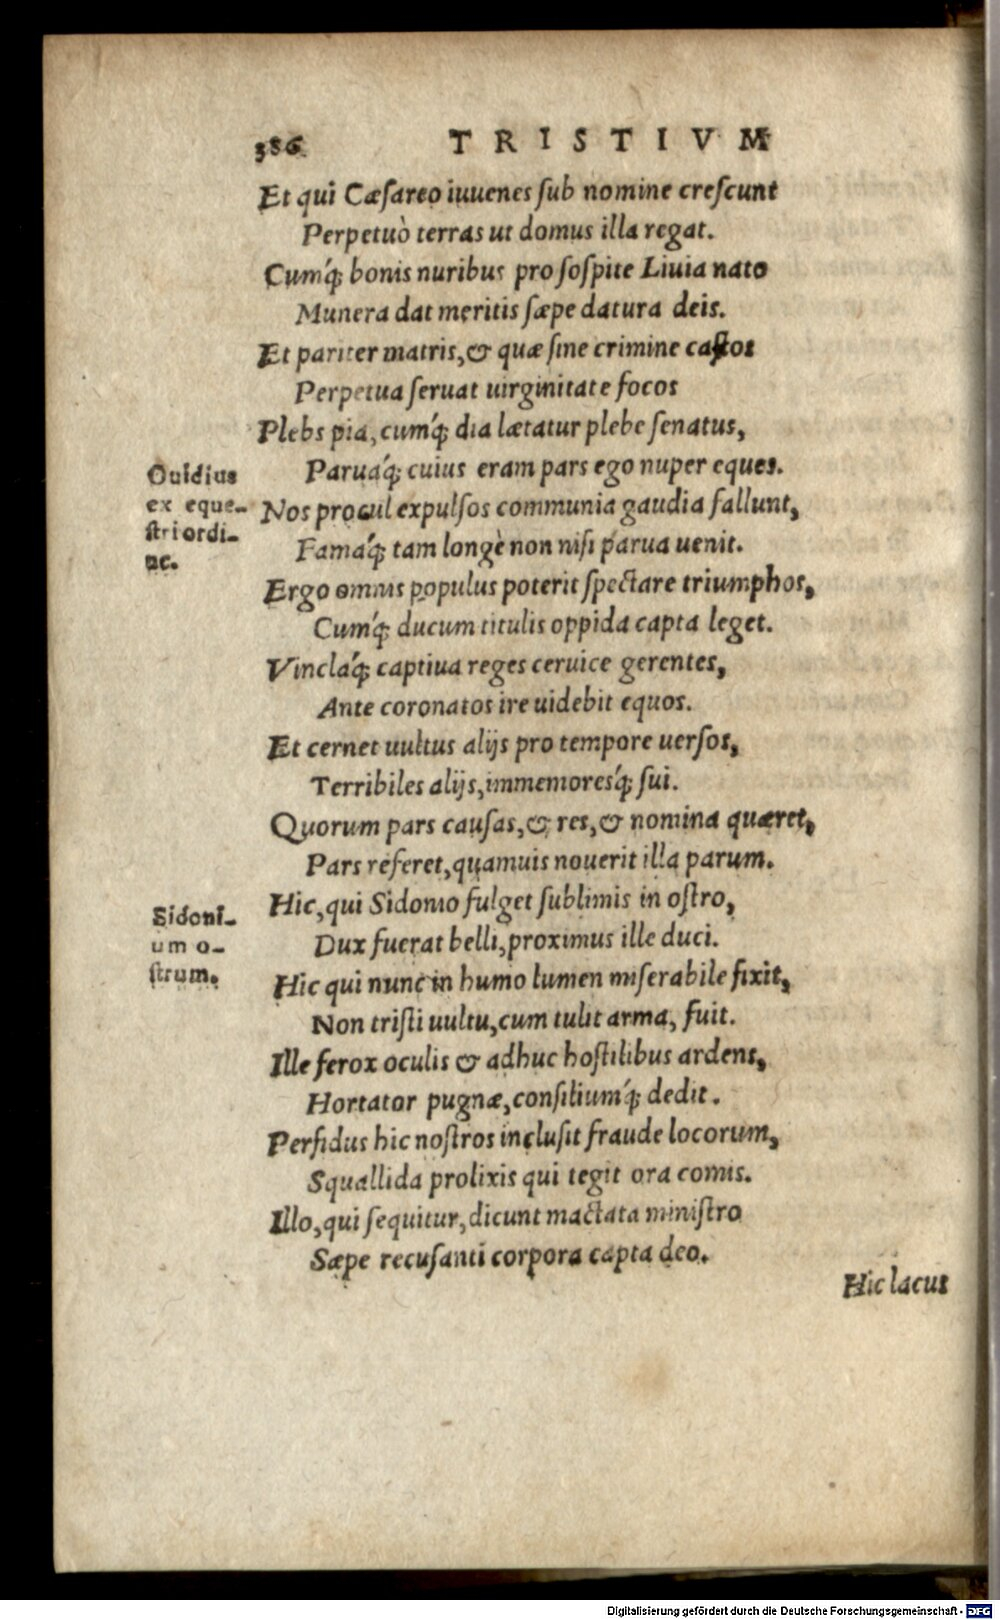 386 TRISTIVM
Et qui Cæſareo iuuenes ſub nomine creſcunt
Perpetuò terras ut domus illa regat.
Cumq́; bonis nuribus pro ſoſpite Liuia nato
Munera dat meritis ſæpe datura deis.
Et pariter matris, & quæ ſine crimine caſtos
Perpetua ſeruat uirginitate focos
Plebs pia, cumq́; dia lætatur plebe ſenatus,
Paruaq́; cuius eram pars ego nuper eques.
Ouidius
ex eque-
ſtri ordi-
ne.
Nos procul expulſos communia gaudia fallunt,
Famaq́; tam longè non niſi parua uenit.
Ergo omnis populus poterit ſpectare triumphos,
Cumq́; ducum titulis oppida capta leget.
Vinclaq́; captiua reges ceruice gerentes,
Ante coronatos ire uidebit equos.
Et cernet uultus alijs pro tempore uerſos,
Terribiles alijs, immemoresq́; ſui.
Quorum pars cauſas, & res, & nomina quæret,
Pars referet, quamuis nouerit illa parum.
Hic, qui Sidonio fulget ſublimis in oſtro,
Dux fuerat belli, proximus ille duci.
Sidoni-
um o-
ſtrum.
Hic qui nunc in humo lumen miſerabile fixit,
Non triſti uultu, cum tulit arma, fuit.
Ille ferox oculis & adhuc hoſtilibus ardens,
Hortator pugnæ, conſiliumq́; dedit.
Perfidus hic noſtros incluſit fraude locorum,
Squallida prolixis qui tegit ora comis.
Illo, qui ſequitur, dicunt mactata miniſtro
Sæpe recuſanti corpora capta deo.
Hic lacus
Digitalisierung gefördert durch die Deutsche Forschungsgemeinschaft - DFG